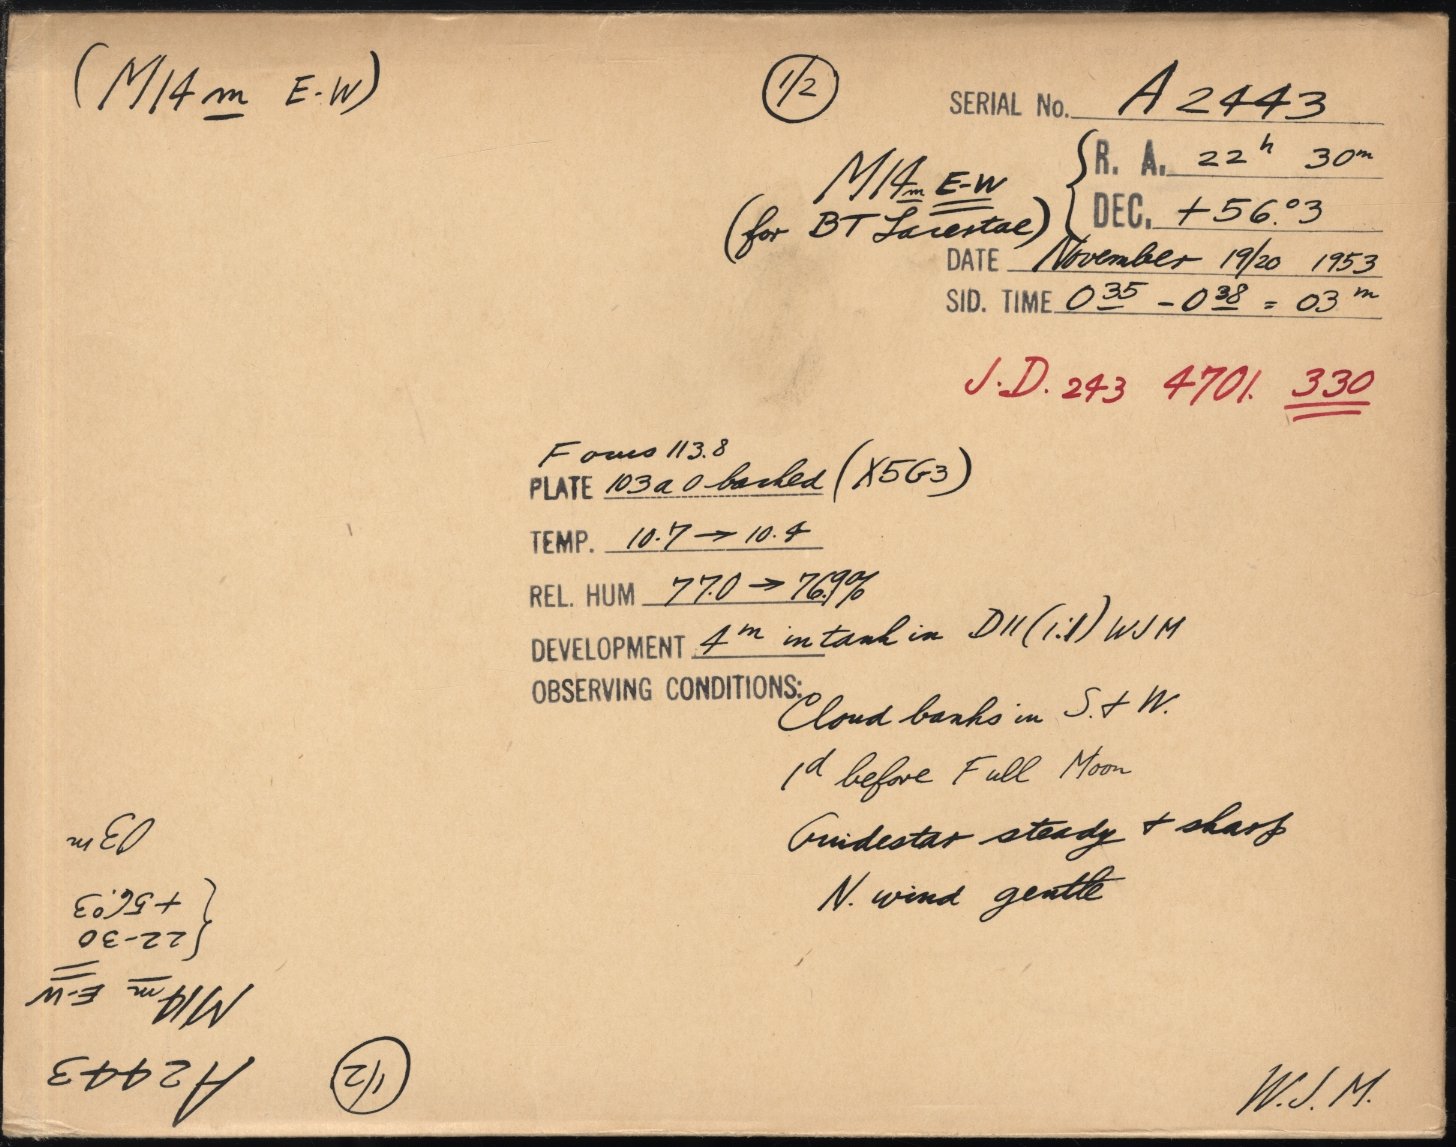 (M14m E-W)
1/2
SERIAL No. A2443
M14m E-W
(for BT Lacertae)
R. A. 22h 30m
DEC. +56.°3
DATE November 19/20 1953
SID. TIME 0 35 - 0 38 = 03m
J.D. 243 4701. 330
Focus 113.8
PLATE 103a O backed (X5G3)
TEMP. 10.7 → 10.4
REL. HUM 77.0 → 76.9%
DEVELOPMENT 4m in tank in D11 (1:1) WJM
OBSERVING CONDITIONS:
Cloud banks in S. & W.
1d before Full Moon
Guidestar steady & sharp
N. wind gentle
A2443
M14m E-W
22-30
+56.°3
03m
1/2
W.J.M.